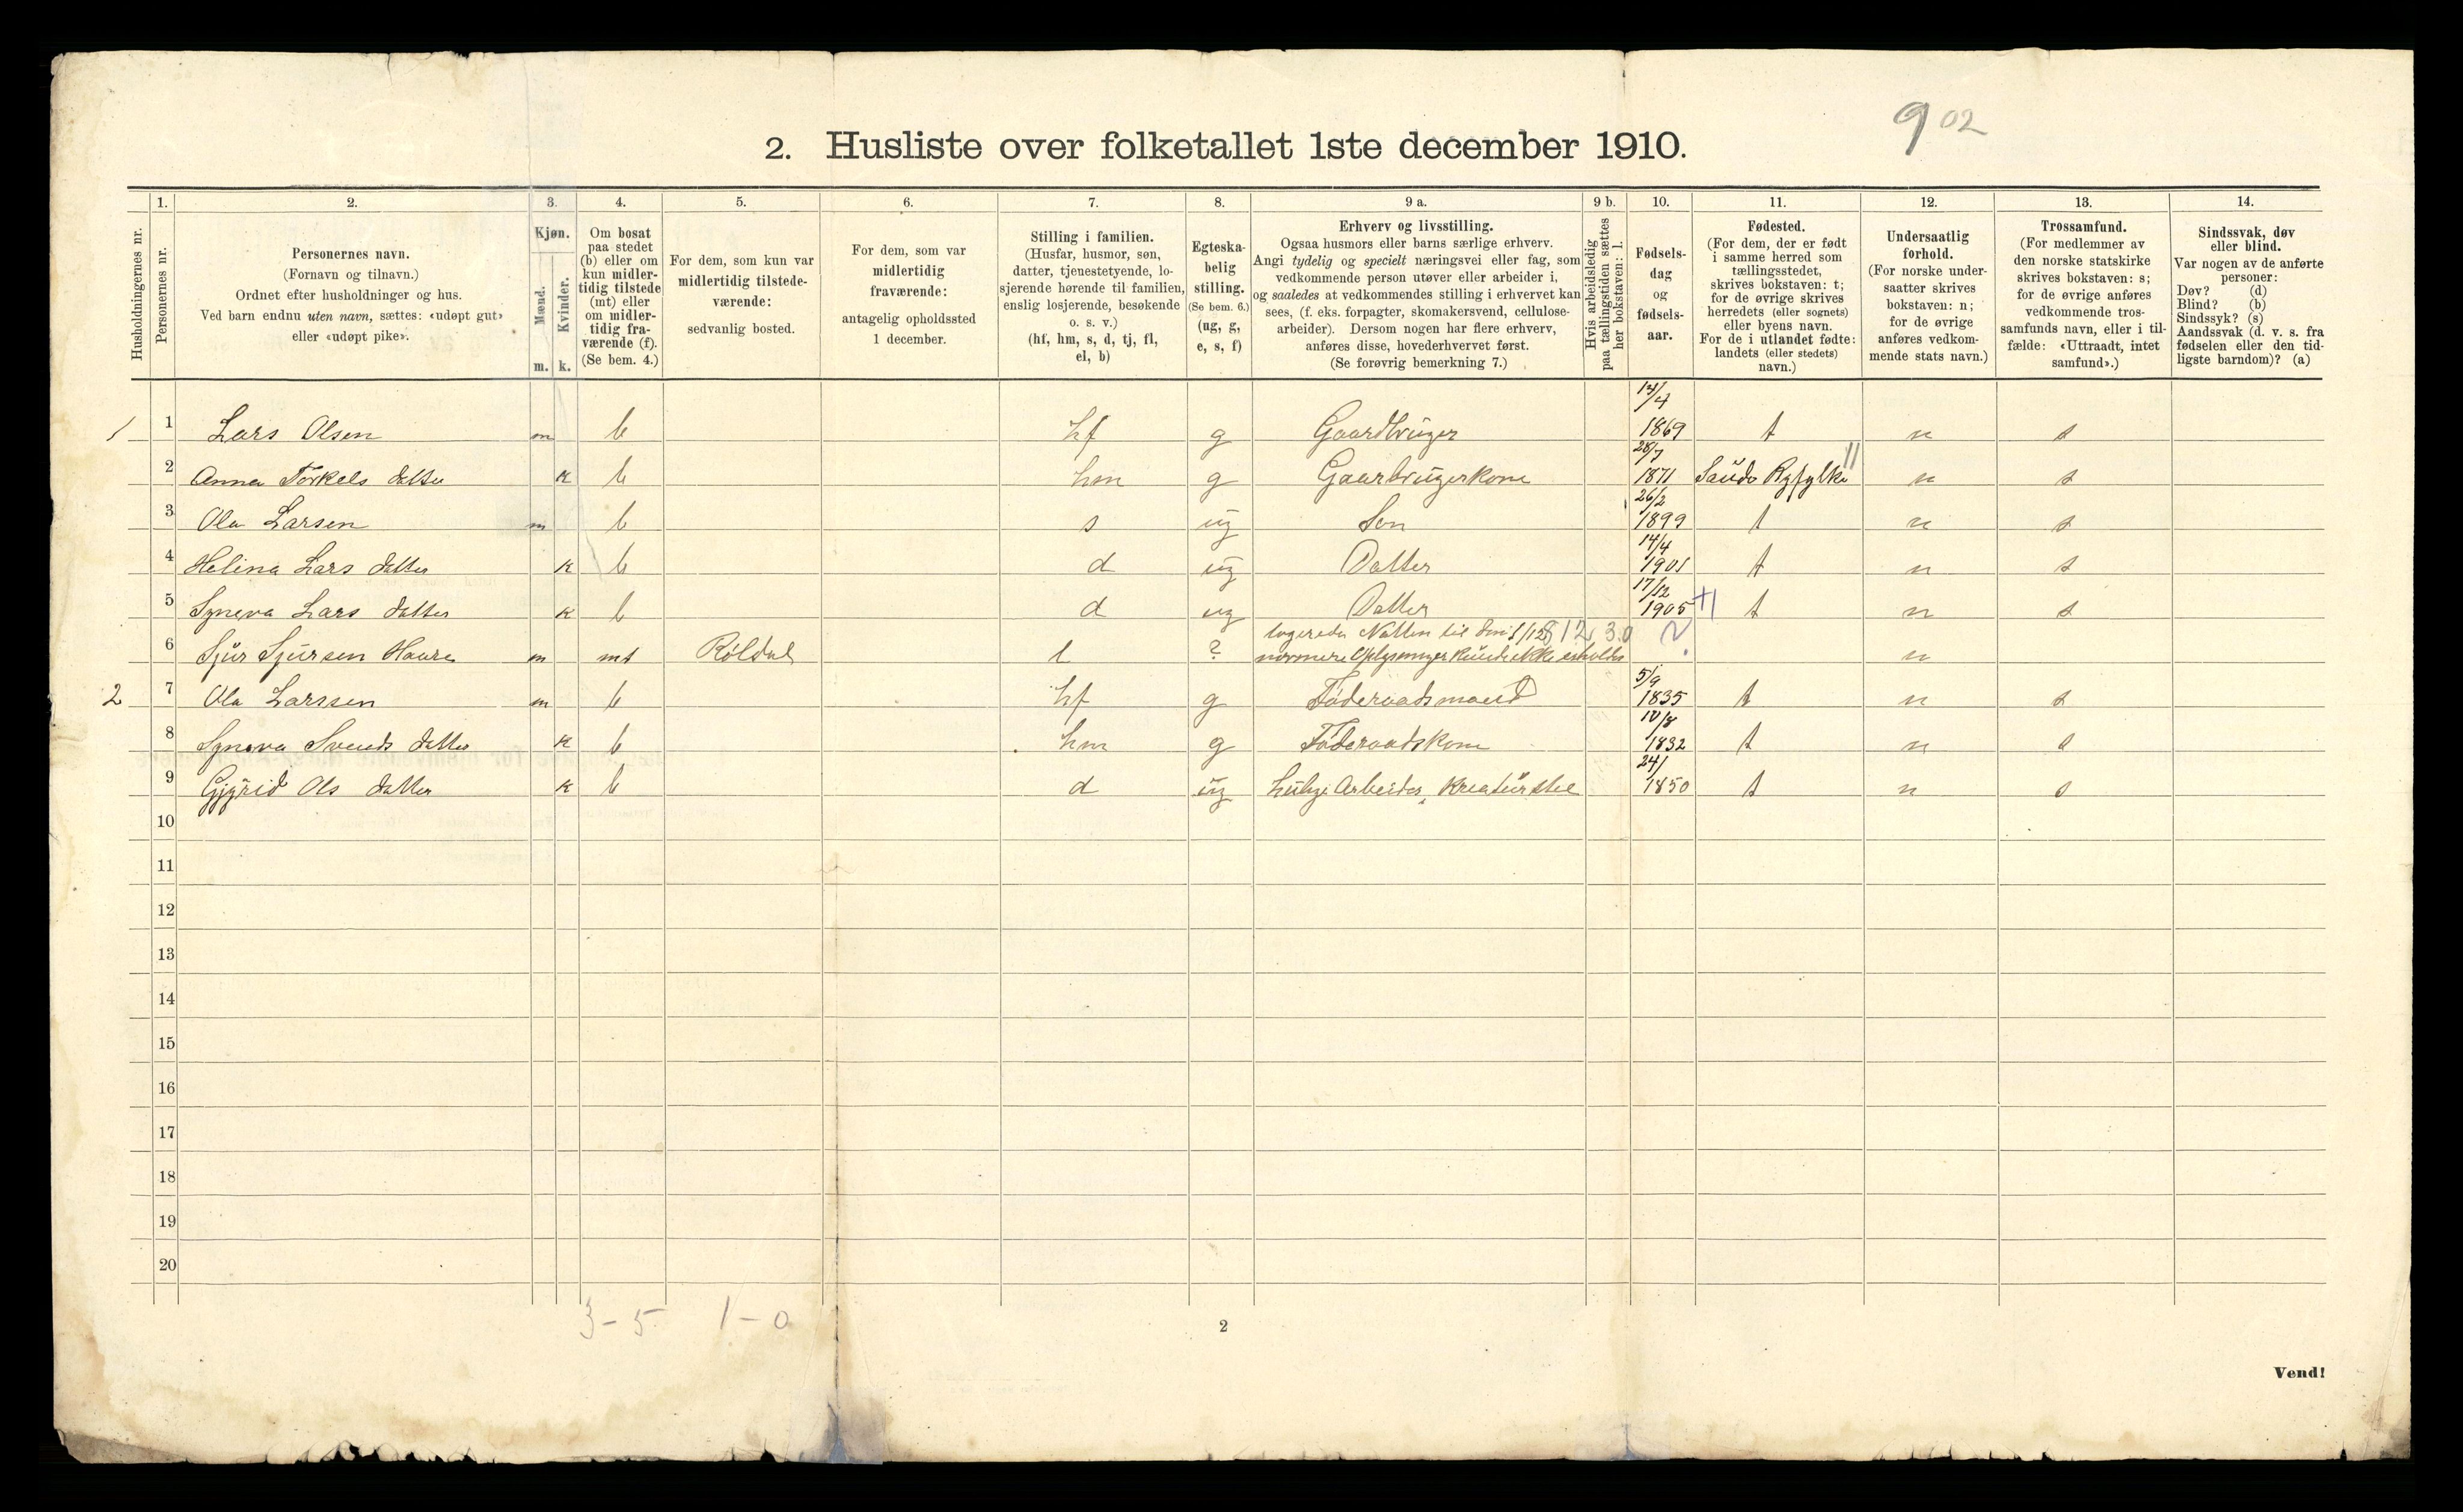 9 02
2. Husliste over folketallet 1ste december 1910.
Husholdningernes nr.
1.
Personernes nr.
2.
Personernes navn.
(Fornavn og tilnavn.)
Ordnet efter husholdninger og hus.
Ved barn endnu uten navn, sættes: «udøpt gut»
eller «udøpt pike».
3.
Kjøn.
Mænd.
Kvinder.
m. k.
4.
Om bosat
paa stedet
(b) eller om
kun midler-
tidig tilstede
(mt) eller
om midler-
tidig fra-
værende (f).
(Se bem. 4.)
5.
For dem, som kun var
midlertidig tilstede-
værende:
sedvanlig bosted.
6.
For dem, som var
midlertidig
fraværende:
antagelig opholdssted
1 december.
7.
Stilling i familien.
(Husfar, husmor, søn,
datter, tjenestetyende, lo-
sjerende hørende til familien,
enslig losjerende, besøkende
o. s. v.)
(hf, hm, s, d, tj, fl,
el, b)
8.
Egteska-
belig
stilling.
(Se bem. 6.)
(ug, g,
e, s, f)
9 a.
Erhverv og livsstilling.
Ogsaa husmors eller barns særlige erhverv.
Angi tydelig og specielt næringsvei eller fag, som
vedkommende person utøver eller arbeider i,
og saaledes at vedkommendes stilling i erhvervet kan
sees, (f. eks. forpagter, skomakersvend, cellulose-
arbeider). Dersom nogen har flere erhverv,
anføres disse, hovederhvervet først.
(Se forøvrig bemerkning 7.)
9 b.
Hvis arbeidsledig
paa tællingstiden sættes
her bokstaven: l.
10.
Fødsels-
dag
og
fødsels-
aar.
11.
Fødested.
(For dem, der er født
i samme herred som
tællingsstedet,
skrives bokstaven: t;
for de øvrige skrives
herredets (eller sognets)
eller byens navn.
For de i utlandet fødte:
landets (eller stedets)
navn.)
12.
Undersaatlig
forhold.
(For norske under-
saatter skrives
bokstaven: n;
for de øvrige
anføres vedkom-
mende stats navn.)
13.
Trossamfund.
(For medlemmer av
den norske statskirke
skrives bokstaven: s;
for de øvrige anføres
vedkommende tros-
samfunds navn, eller i til-
fælde: «Uttraadt, intet
samfund».)
14.
Sindssvak, døv
eller blind.
Var nogen av de anførte
personer:
Døv? (d)
Blind? (b)
Sindssyk? (s)
Aandssvak (d. v. s. fra
fødselen eller den tid-
ligste barndom)? (a)
1 1 Lars Olsen m b hf g Gaardbruger 14/4 1869 t n s
2 Anna Torkels datter k b hm g Gaarbrugerkone 28/7 1871 Saude Ryfylke 11 n s
3 Ola Larsen m b s ug Søn 26/2 1899 t n s
4 Helina Lars datter k b d ug Datter 14/4 1901 t n s
5 Syneva Lars datter k b d ug Datter 17/12 1905 t n s
6 Sjur Sjursen Haara m mt Röldal l ? logerede Natten til den 1/12
nærmere Oplysninger kunde ikke erholdes ? n
2 7 Ola Larssen m b hf g Föderaadsmand 5/9 1835 t n s
8 Syneva Svends datter k b hm g Föderaadskone 10/8 1832 t n s
9 Gjyrid Ols datter k b d ug Huslige Arbeider, Kreaturstel 24/ 1850 t n s
10
11
12
13
14
15
16
17
18
19
20
3 - 5 1 - 0
2
Vend!